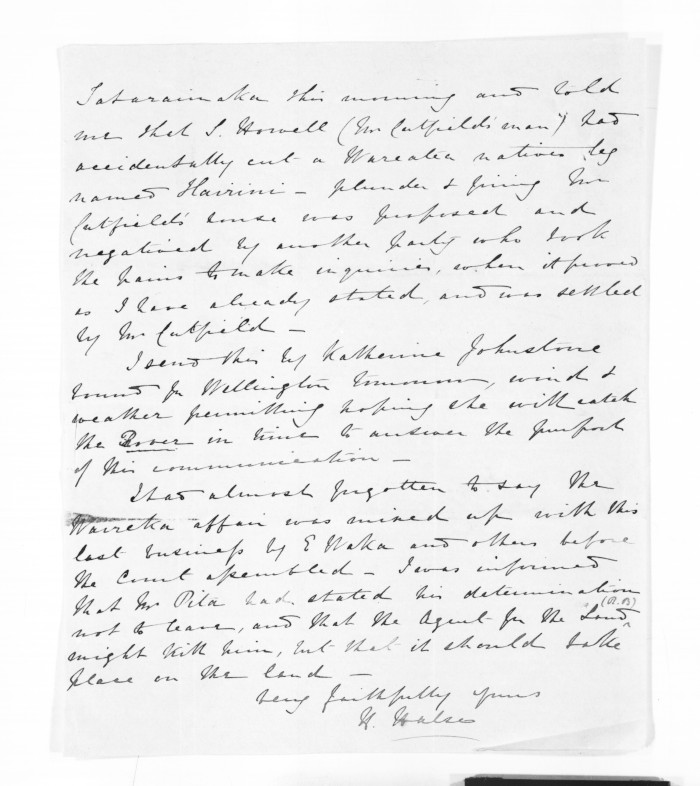 Tataraimaka this morning and told
me that S. Howell (Mr Cutfield's man) had
accidentally cut a Wareatea natives leg
named Hairini - plunder & firing Mr
Cutfield's house was proposed and
negatived by another party who took
the pains to make inquiries, when it proved
as I have already stated, and was settled
by Mr Cutfield -
I send this by Katherine Johnstone
bound for Wellington tomorrow, wind &
weather permitting hoping she will catch
the Rover in time to answer the purport
of this communication -
I had almost forgotten to say the
Waireka affair was mixed up with this
last business by E Waka and others before
the Court assembled - I was informed
that Mr Pita had stated his determination
not to leave, and that the Agent for the Land
might kill him, but that it should take
place on the land -
Very faithfully yours
H. Halse